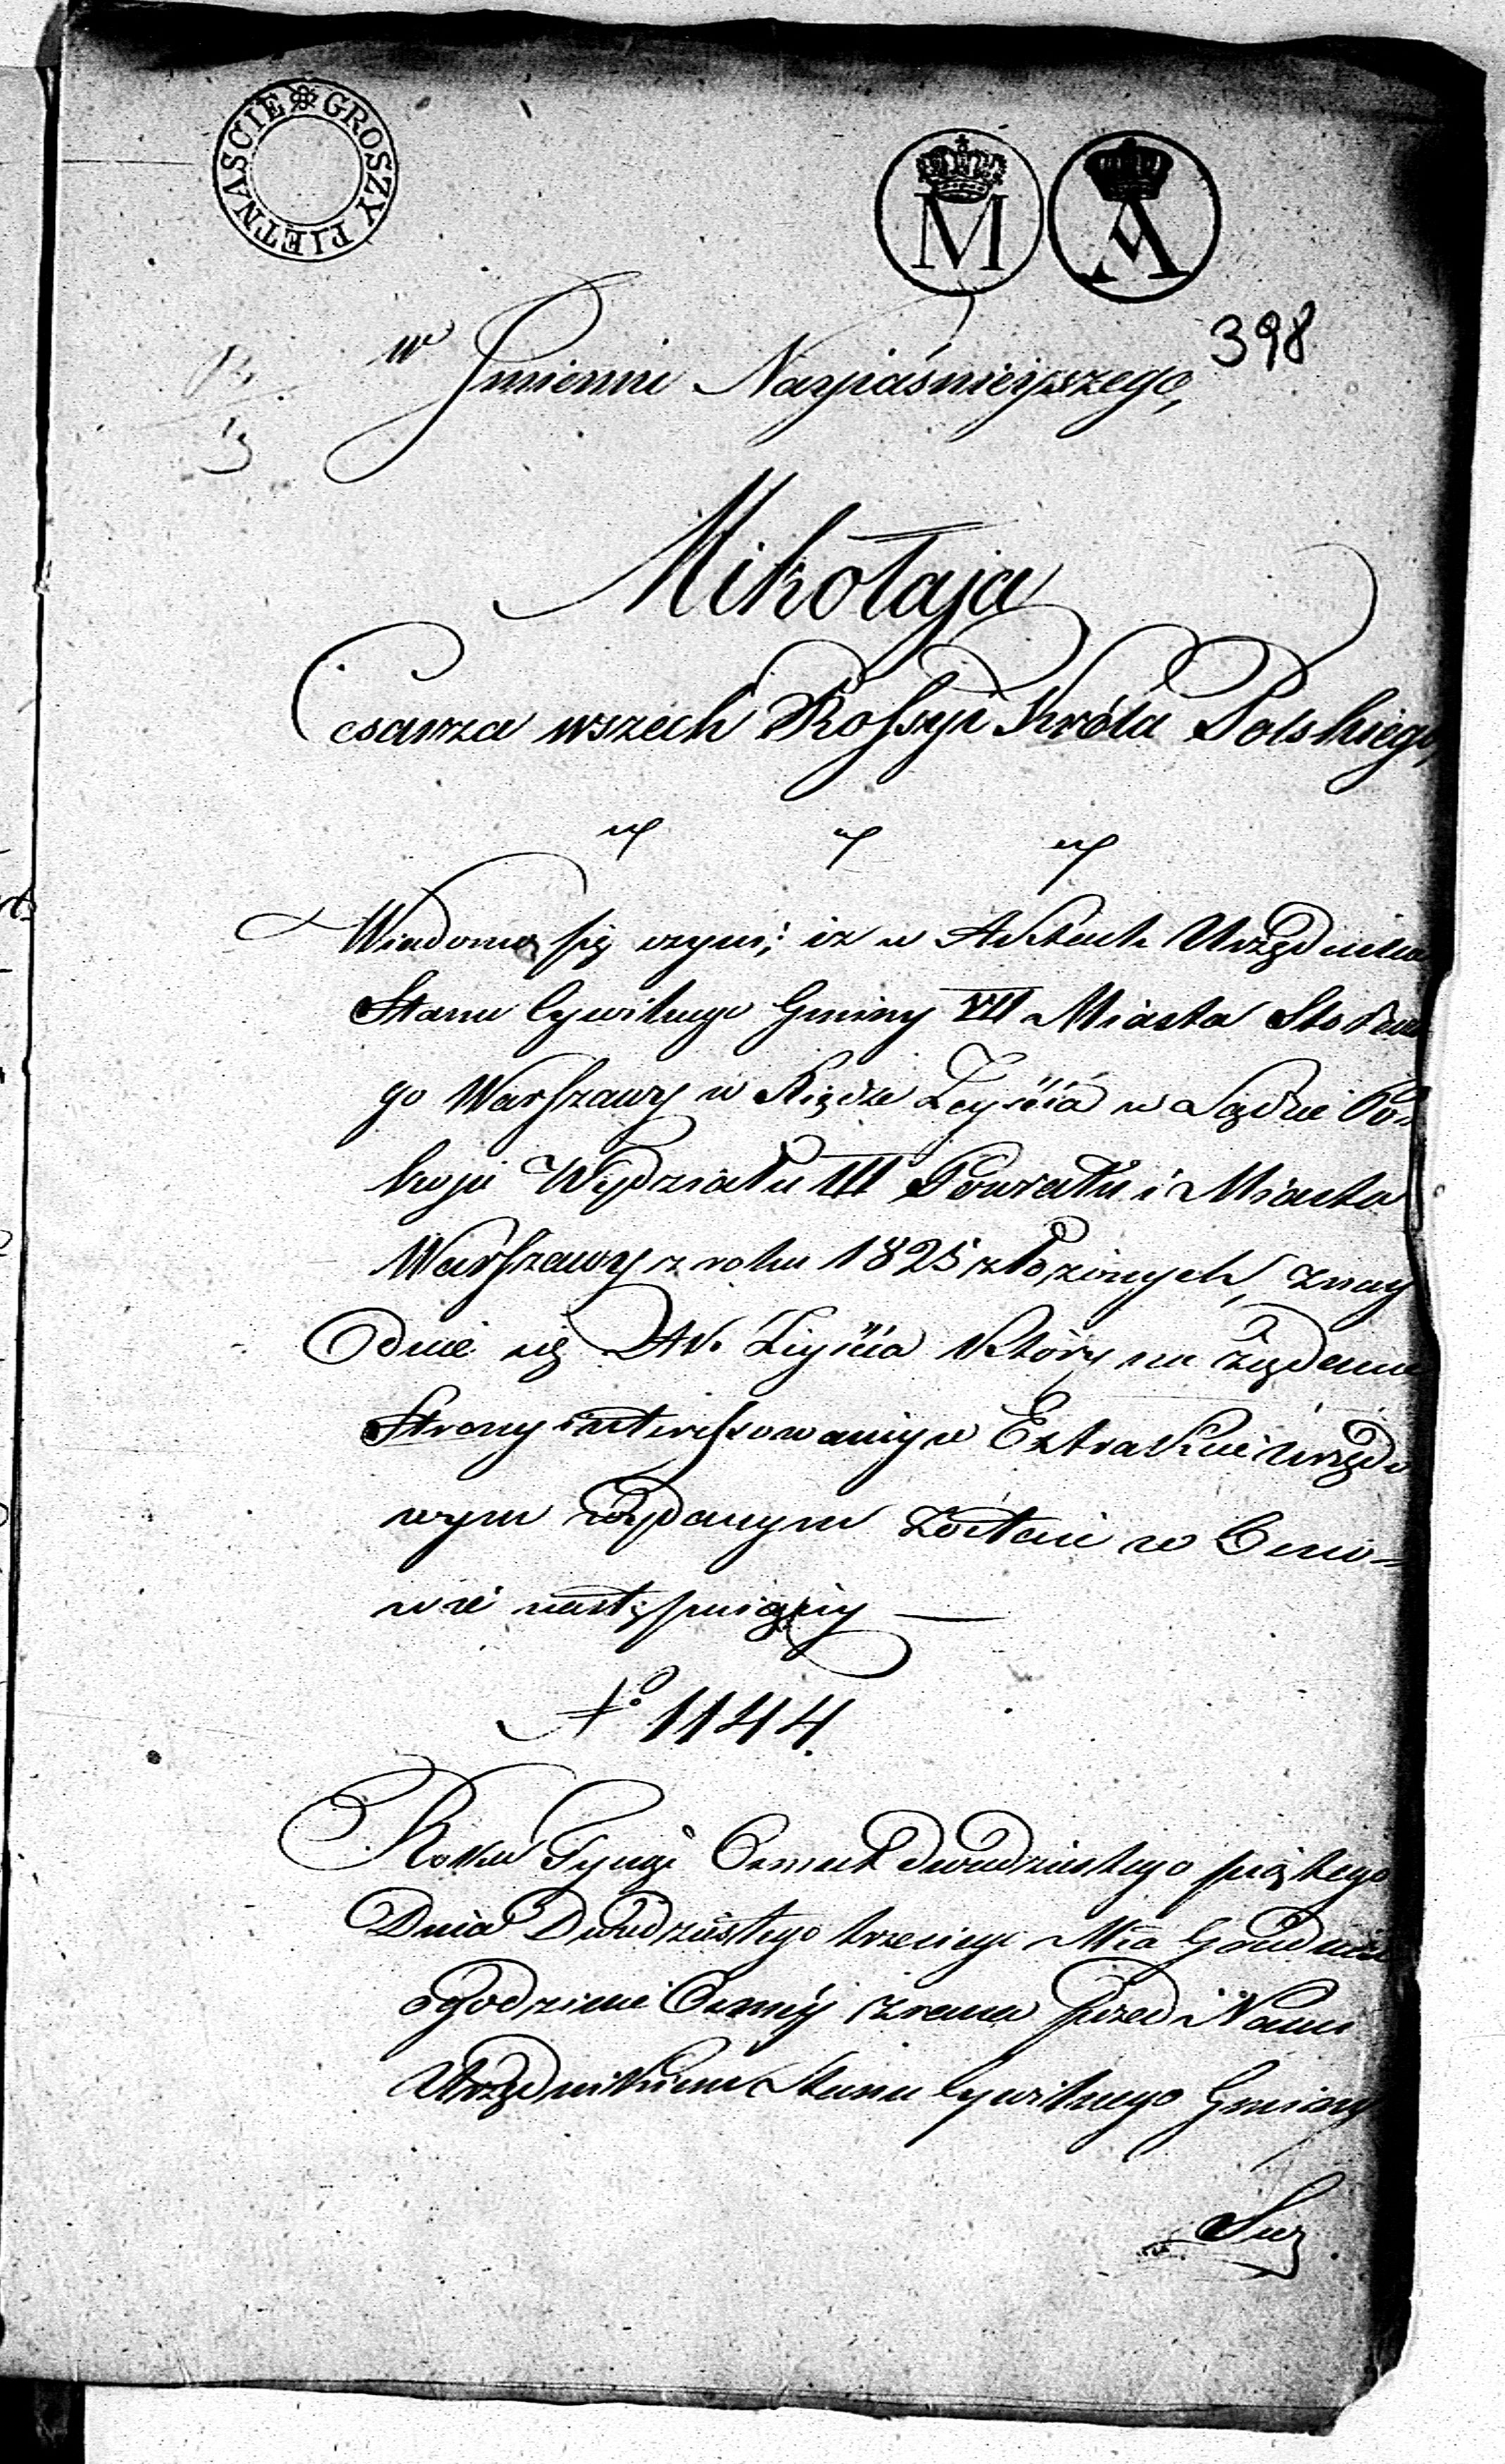 GROSZY PIETNAŚCIE
M A
398
w
Jmieniu Nayiaśnieyszego,
Mikołaja
Cesarza wszech Rossyi Króla Polskiego,
Wiadomo się czyni; iż w Aktach Urzędnika
Stanu Cywilnego Gminy VII Miasta Stołeczne
go Warszawy w Księdze Zeyścia w Sądzie Po=
koju Wydziału III Powiatu i Miasta
Warszawy z roku 1825 złożonych, znay
duie się Akt Zeyścia który na żądanie
Strony interessowaney w Extrakcie urzędo
wym wydanym zostaie w Osno=
wie następuiącey —
No 1144.
Roku Tysiąc Osmset dwudziestego piątego
Dnia Dwudziestego trzeciego Mca Grudnia
o godzinie Osmey zrana przed Nami
Urzędnikiem Stanu Cywilnego Gminy